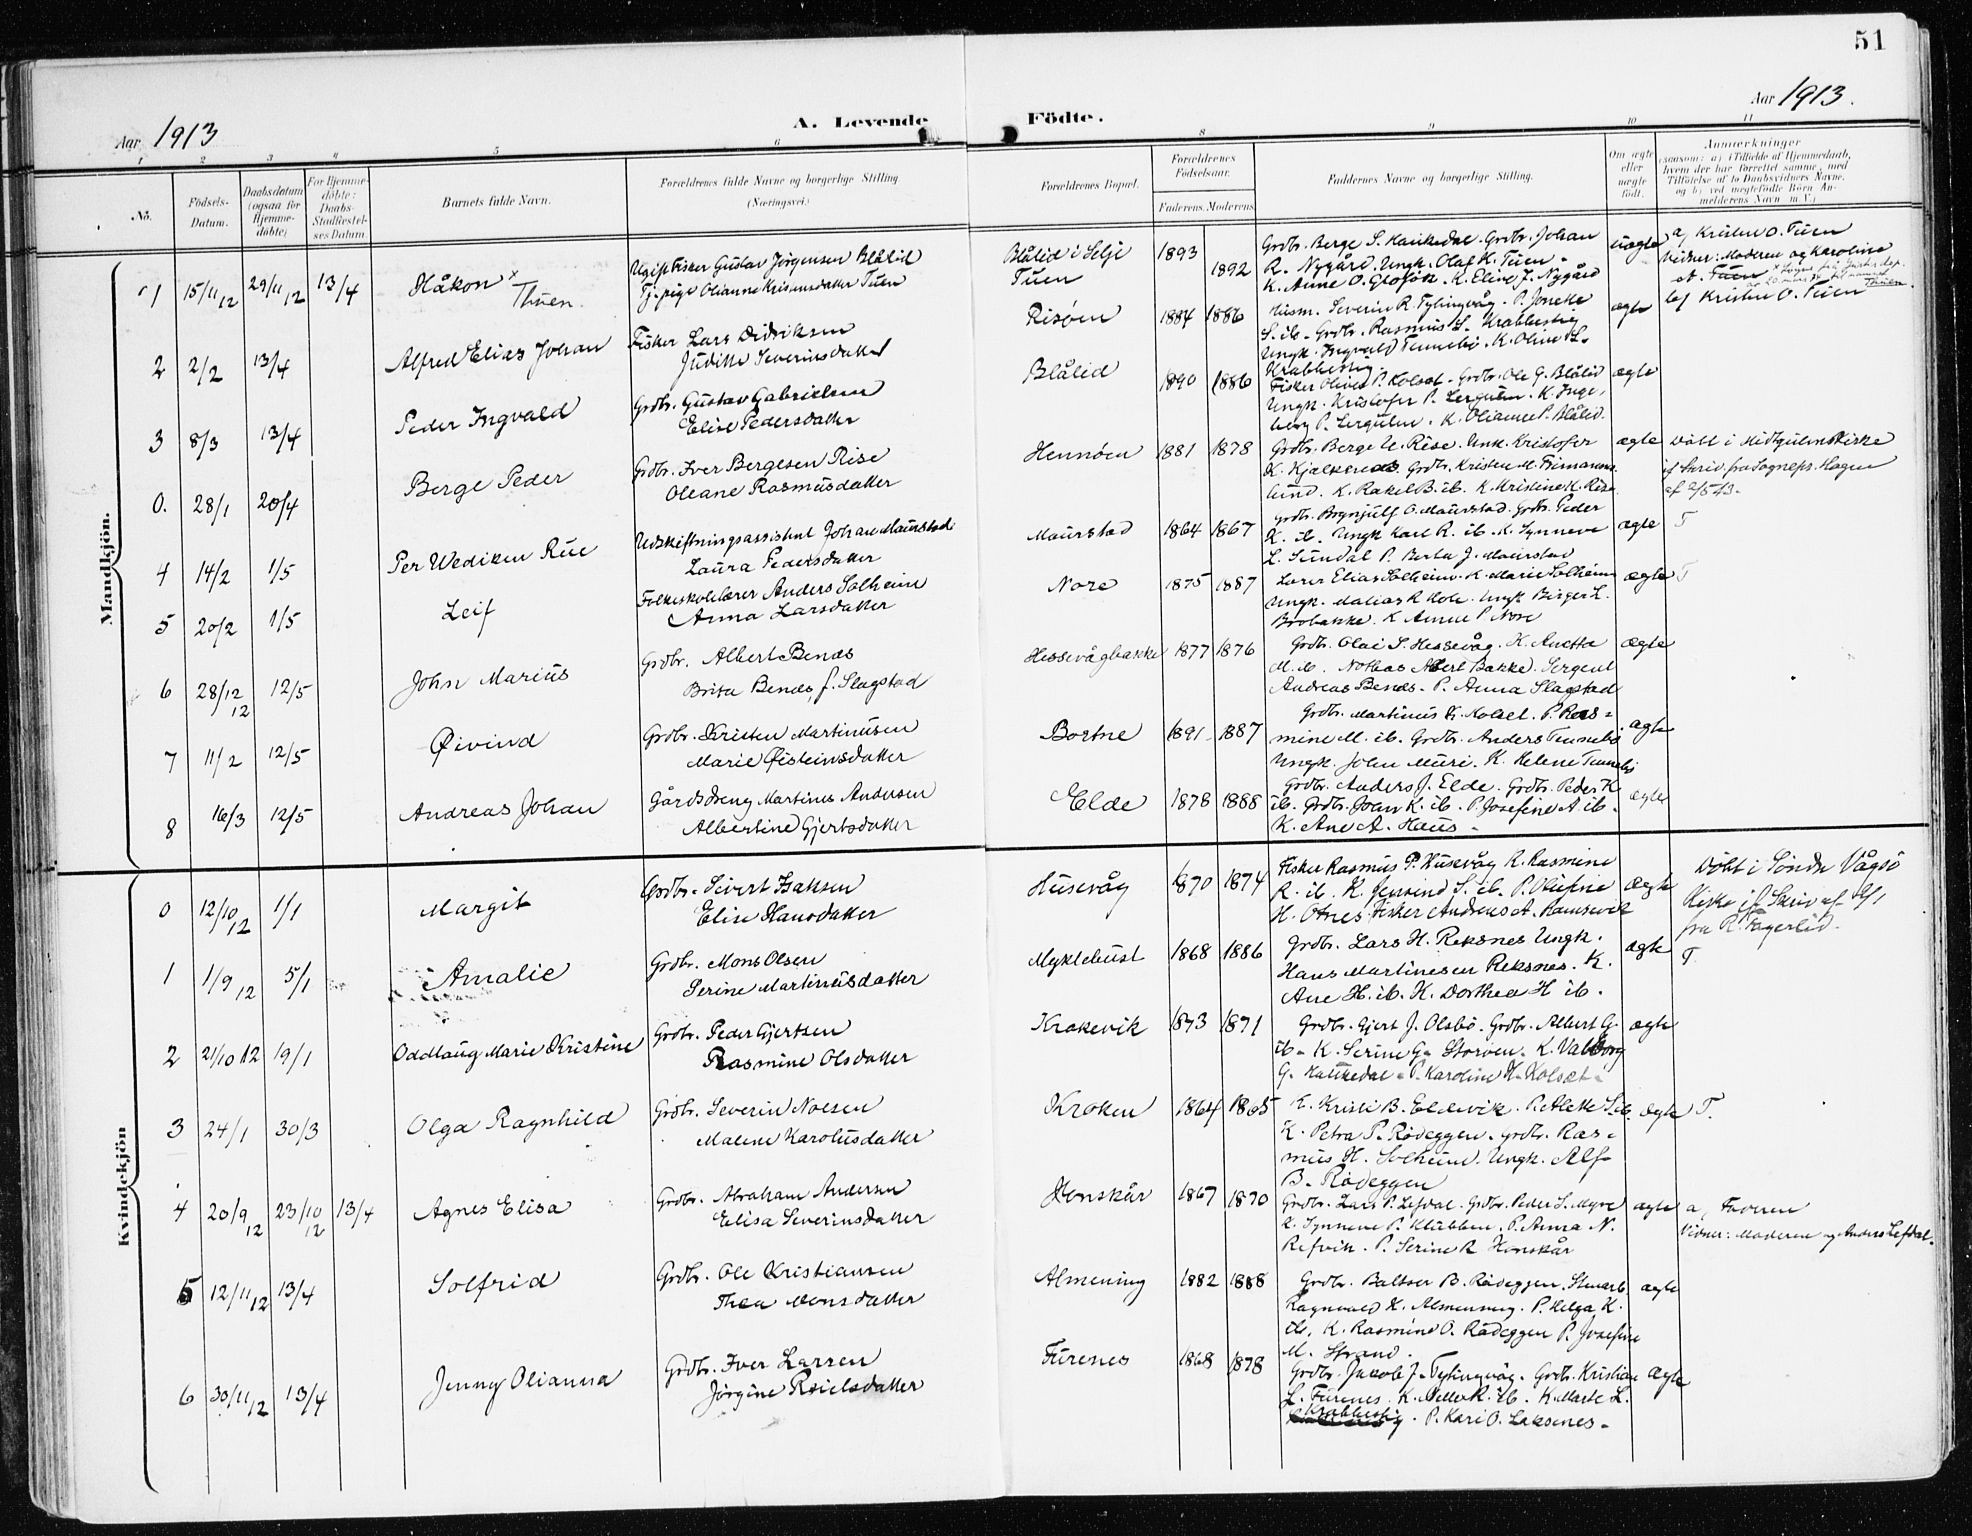 51
Aar 1913
A. Levende
Födte.
Aar 1913.
1 2 3 4 5 6 8 9 10 11
No.
Födsels-Datum.
Daabsdatum (ogsaa for Hjemme-döbte)
For Hjemme-döbte: Daabs-Stadfæstel-ses Datum.
Barnets fulde Navn.
Forældrenes fulde Navne og borgerlige Stilling (Næringsvei.)
Forældrenes Bopæl.
Forældrenes Födselsaar.
Faderens. Moderens
Faddernes Navne og borgerlige Stilling.
Om ægte eller uægte födt.
Anmærkninger
(saasom: a) i Tilfælde af Hjemmedaab, hvem der har forrettet samme, med Tilföielse af to Daabsvidners Navne, og b) ved uegtefödte Börn An-melderens Navn m.V.)
Mandkjön.
1 15/11 12 29/11 12 13/4 Håkon x Thuen.
Ugift Fisker Gustav Jørgensen Blålid
Tj. pige Olianne Kristensdatter Tuen
Blålid i Selje
Tuen
1893 1892
Grdbr. Berge S. Haukedal. Grdbr. Johan
R. Nygård. Ungk. Olaf K. Tuen.
K. Anne O. K. Eline J. Nygård
uægte
a) Kristen O. Tuen
Vidner: Moderen og Karoline
b) Kristen O. Tuen
2 2/2 13/4 Alfred Elias Johan
Fisker Lars Didriksen
Judithe Severinsdatter
Risöen 1884 1886
Husm. Severin R. Tytingvåg. P. Jonette
S. ib. Grdbr. Rasmus S. Krabbestig
Ungk. Ingvald Tennebö. K. Oline S.
Krabbestig
ægte
3 8/3 13/4 Peder Ingvald
Grdbr. Gustav Gabrielsen
Elise Pedersdatter
Blålid 1890 1886
Fisker Oliver P. Kolset. Grdbr. Ole G. Blålid
Ungk. Kristofer P. Lergulen. K. Inge-
borg P. Lergulen. K. Olianne P. Blålid.
ægte
0. 28/1 20/4 Berge Peder
Grdbr. Iver Bergesen Rise
Oleane Rasmusdatter
Hennöen 1881 1878
Grdbr. Berge U. Rise. Unk. Kristofer
K. Grdbr. Kristen M.
lund. K. Rakel B. ib. K. Kristine K. Rise
ægte
Döbt i Midtgulens Kirke
if Skriv. fra Sognepr. Hagen
af 2/5 13.
4 14/2 1/5 Per Wediken Rue
Udskiftningsassistent Johan Maurstad
Laura Pedersdatter
Maurstad 1864 1867
Grdbr. Brynjulf O. Maurstad. Grdbr. Peder
R. ib. Ungk Karl R. ib. K. Synneve
L. Sundal P. Berta J. Maurstad
ægte T
5 20/2 1/5 Leif
Folkeskolelærer Anders Solheim
Anna Larsdatter
Nore 1875 1887
Lærer Elias Solheim. K. Marie Solheim
Ungk. Matias R Hole. Ungk Birger L.
Brobakke. K Anne P Nore
ægte T
6 28/12 12 12/5 John Marius
Grdbr. Albert Benæs
Brita Benæs, f. Slagstad
Hessevågbakke 1877 1876
Grdbr. Olai S. Hessevåg. K. Anetta
M. ib. Notbas Albert Bakke. Sergent
Andreas Benæs. P. Anna Slagstad
ægte
7 11/2 12/5 Øivind
Grdbr. Kristen Martinusen
Marie Øisteinsdatter
Bortne 1891 1887
Grdbr. Martinus K. Kolset. P. Ras-
mine M. ib. Grdbr. Anders Tennebö
Ungk. John Muri. K. Helene Tennebö
ægte
8 16/3 12/5 Andreas Johan
Gårdsdreng Martinus Andersen
Albertine Gjertsdatter
Elde 1878 1888
Grdbr. Anders J. Elde. Grdbr. Peder K
ib. Grdbr. Joan K. ib. P. Josefine A ib.
K. Ane A. Haus.
ægte
Kvindekjön
0 12/10 12 1/1 Margit
Grdbr. Sivert Isaksen
Elise Hansdatter
Husevåg 1870 1874
Fisker Rasmus P. Husevåg K. Rasmine
R. ib. K. Jensine S. ib. P. Olufine
H. Otnes. Fisker Andreas A. Ramsevik
ægte
Döbt i Söndre Vågsö
Kirke if Skriv af
fra R. Fagerlid.
1 1/9 12 5/1 Amalie
Grdbr. Mons Olsen
Serine Martinusdatter
Myklebust 1868 1886
Grdbr. Lars H. Reksnes Ungk.
Hans Martinesen Reksnes. K.
Ane H. ib. K. Dorthea H ib.
ægte T.
2 21/10 12 19/1 Oddlaug Marie Kristine
Grdbr. Peder Gjertsen
Rasmine Olsdatter
Krakevik 1873 1871
Grdbr. Gjert J. Olsbö. Grdbr. Albert G.
ib. K. Serine G. Storöen. K. Valborg
G. Haukedal. P. Karoline H. Kolset.
ægte
3 24/1 30/3 Olga Ragnhild
Grdbr. Severin Nolsen
Malene Karolusdatter
Kroken 1864 1865
E. Kristi B. Eldevik. P. Alette S. ib.
K. Petra P. Rödeggen. Grdbr. Ras-
mus H. Solheim. Ungk. Alf
B. Rödeggen
ægte T.
4 20/9 12 23/10 12 13/4 Agnes Elisa
Grdbr. Abraham Andersen
Elisa Severinsdatter
Honskår 1867 1870
Grdbr. Lars P. Lefdal. Grdbr. Peder S. Myre
K. Synneve P. Klubben. P. Anna N.
Refvik. P. Serine R Honskår
ægte
a, Faderen
Vidner: Moderen og Anders Lefdal.
5 12/11 12 13/4 Solfrid
Grdbr. Ole Kristiansen
Thea Monsdatter
Almening 1882 1888
Grdbr. Baltser B. Rödeggen. Stuearb
Ragnvald K. Almenning. P. Helga K.
ib. K. Rasmine O. Rödeggen P. Josefine
M. Strand.
ægte
6 30/11 12 13/4 Jenny Olianna
Grdbr. Iver Larsen
Jörgine Roielsdatter
Furenes 1868 1878
Grdbr. Jakob J. Tytingvåg. Grdbr. Kristian
L. Furenes. K. ib. K. Marte L.
Krabbestig. P. Kari O. Laksenes.
ægte